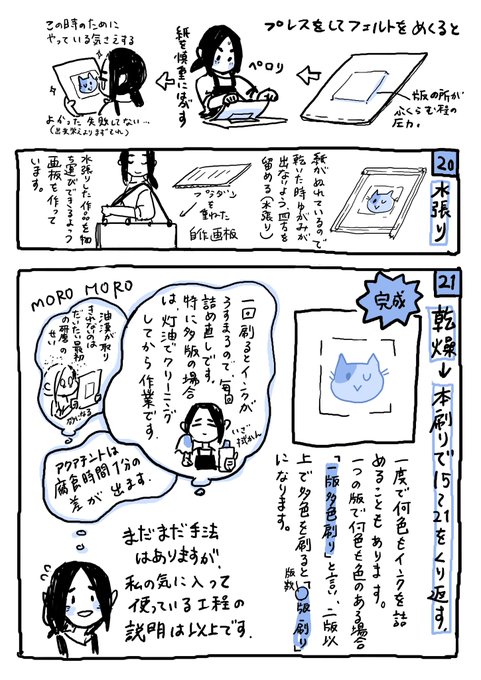 プレスをしてフェルトをめくると
版の所が
ふくらむ程の
圧力。
ペロリ
紙を慎重にはがす
この時のために
やっている気さえする
よかった失敗してない…
(出来栄えよりまずそれ)
20
水張り
紙がぬれているので
乾いた時ゆがみが
出ないよう、四方を
留める(水張り)
プラダン
を重ねた
自作画板
水張りした作品を
運びできるよう
画板を作って
います。
21
乾燥→本刷りで15〜21をくり返す。
完成
一度で何色もインクを詰
めることもあります。
一つの版で何色も色のある場合
「一版多色刷り」と言い、二版以
上で多色を刷ると「◯版刷り」
版数
になります。
一回刷るとインクが
うすまるので、毎回
詰め直しです。
特に多版の場合
は、灯油でクリーニング
してから作業です。
MORO MORO
油膜が取り
きれないのは
だいたい最初
の研磨の
せい
アクアチントは
腐食時間1分の
差が出ます。
まだまだ手法
はありますが、
私の気に入って
使っている工程の
説明は以上です。